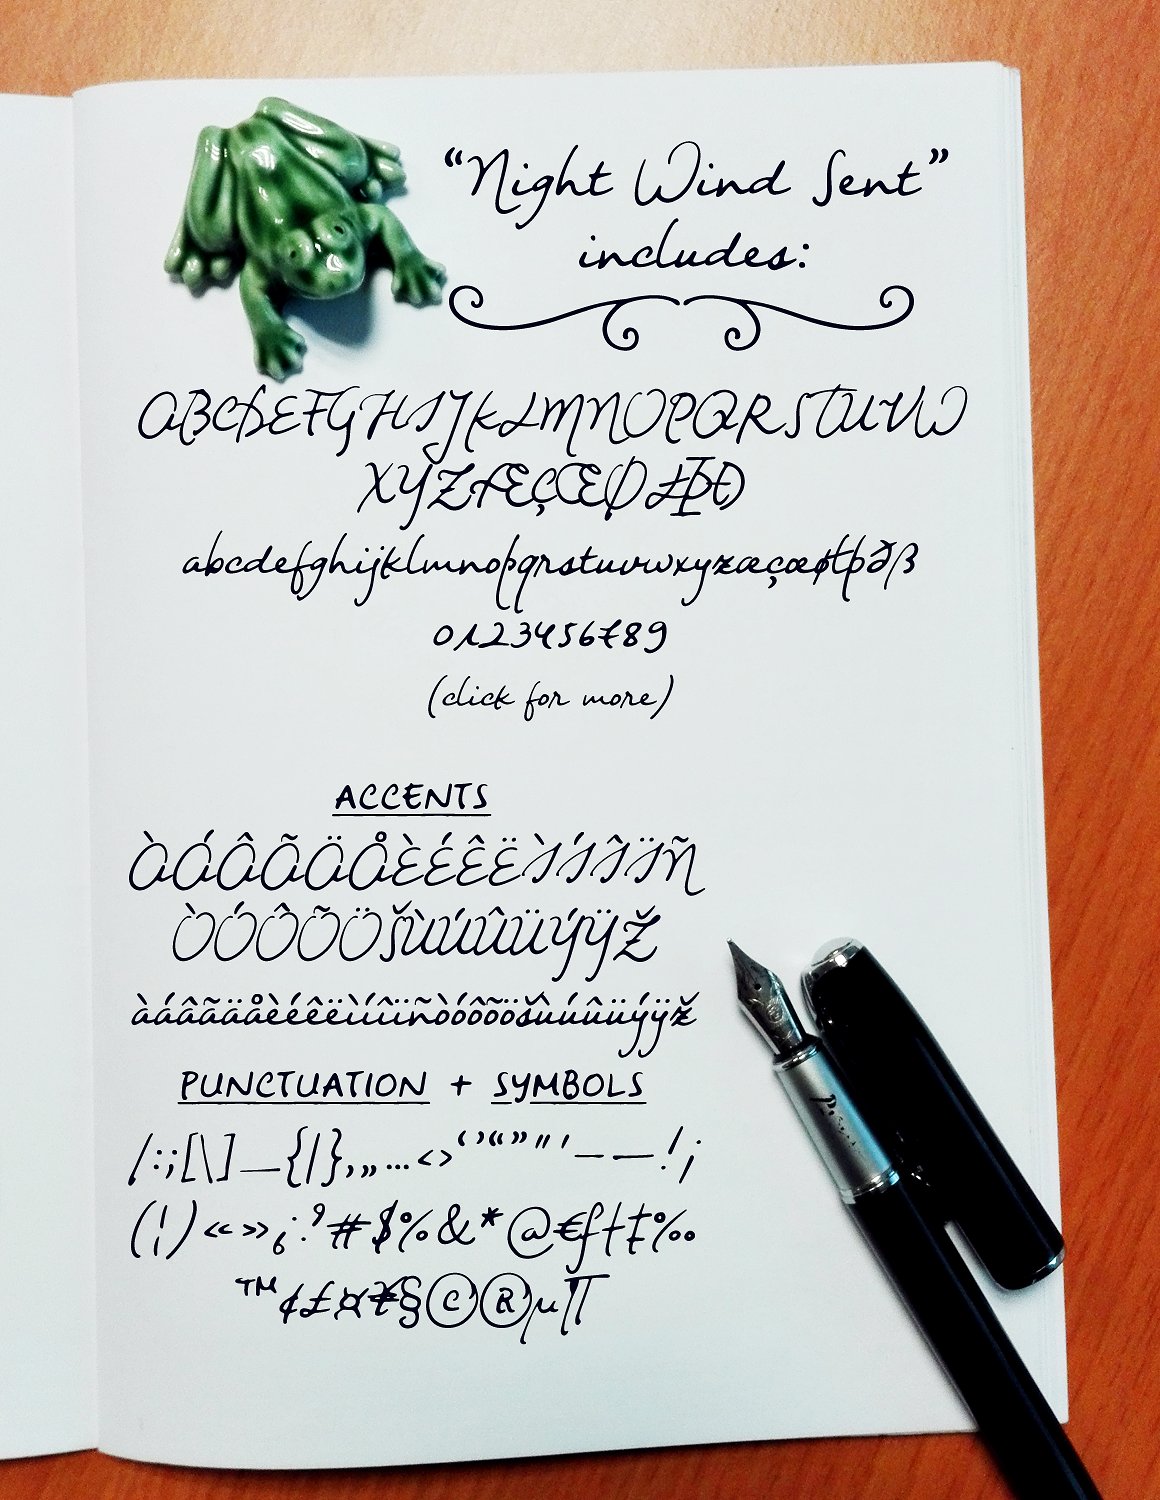 “Night Wind Sent”
includes:
ABCDEFGHIJKLMNOPQRSTUVW
XYZÆÇŒØŁÞÐ
abcdefghijklmnopqrstuvwxyzæçœøłþðß
0123456789
(click for more)
ACCENTS
ÀÁÂÃÄÅÈÉÊËÌÍÎÏÑ
ÒÓÔÕÖŠÙÚÛÜÝŸŽ
àáâãäåèéêëìíîïñòóôõöšùúûüýÿž
PUNCTUATION + SYMBOLS
/:;[\]_{|},„…‹›‘’“”"'–—!¡
(¦)«»¿?#$%&*@€ƒ†‡‰
™¢£¤¥§©®µ¶